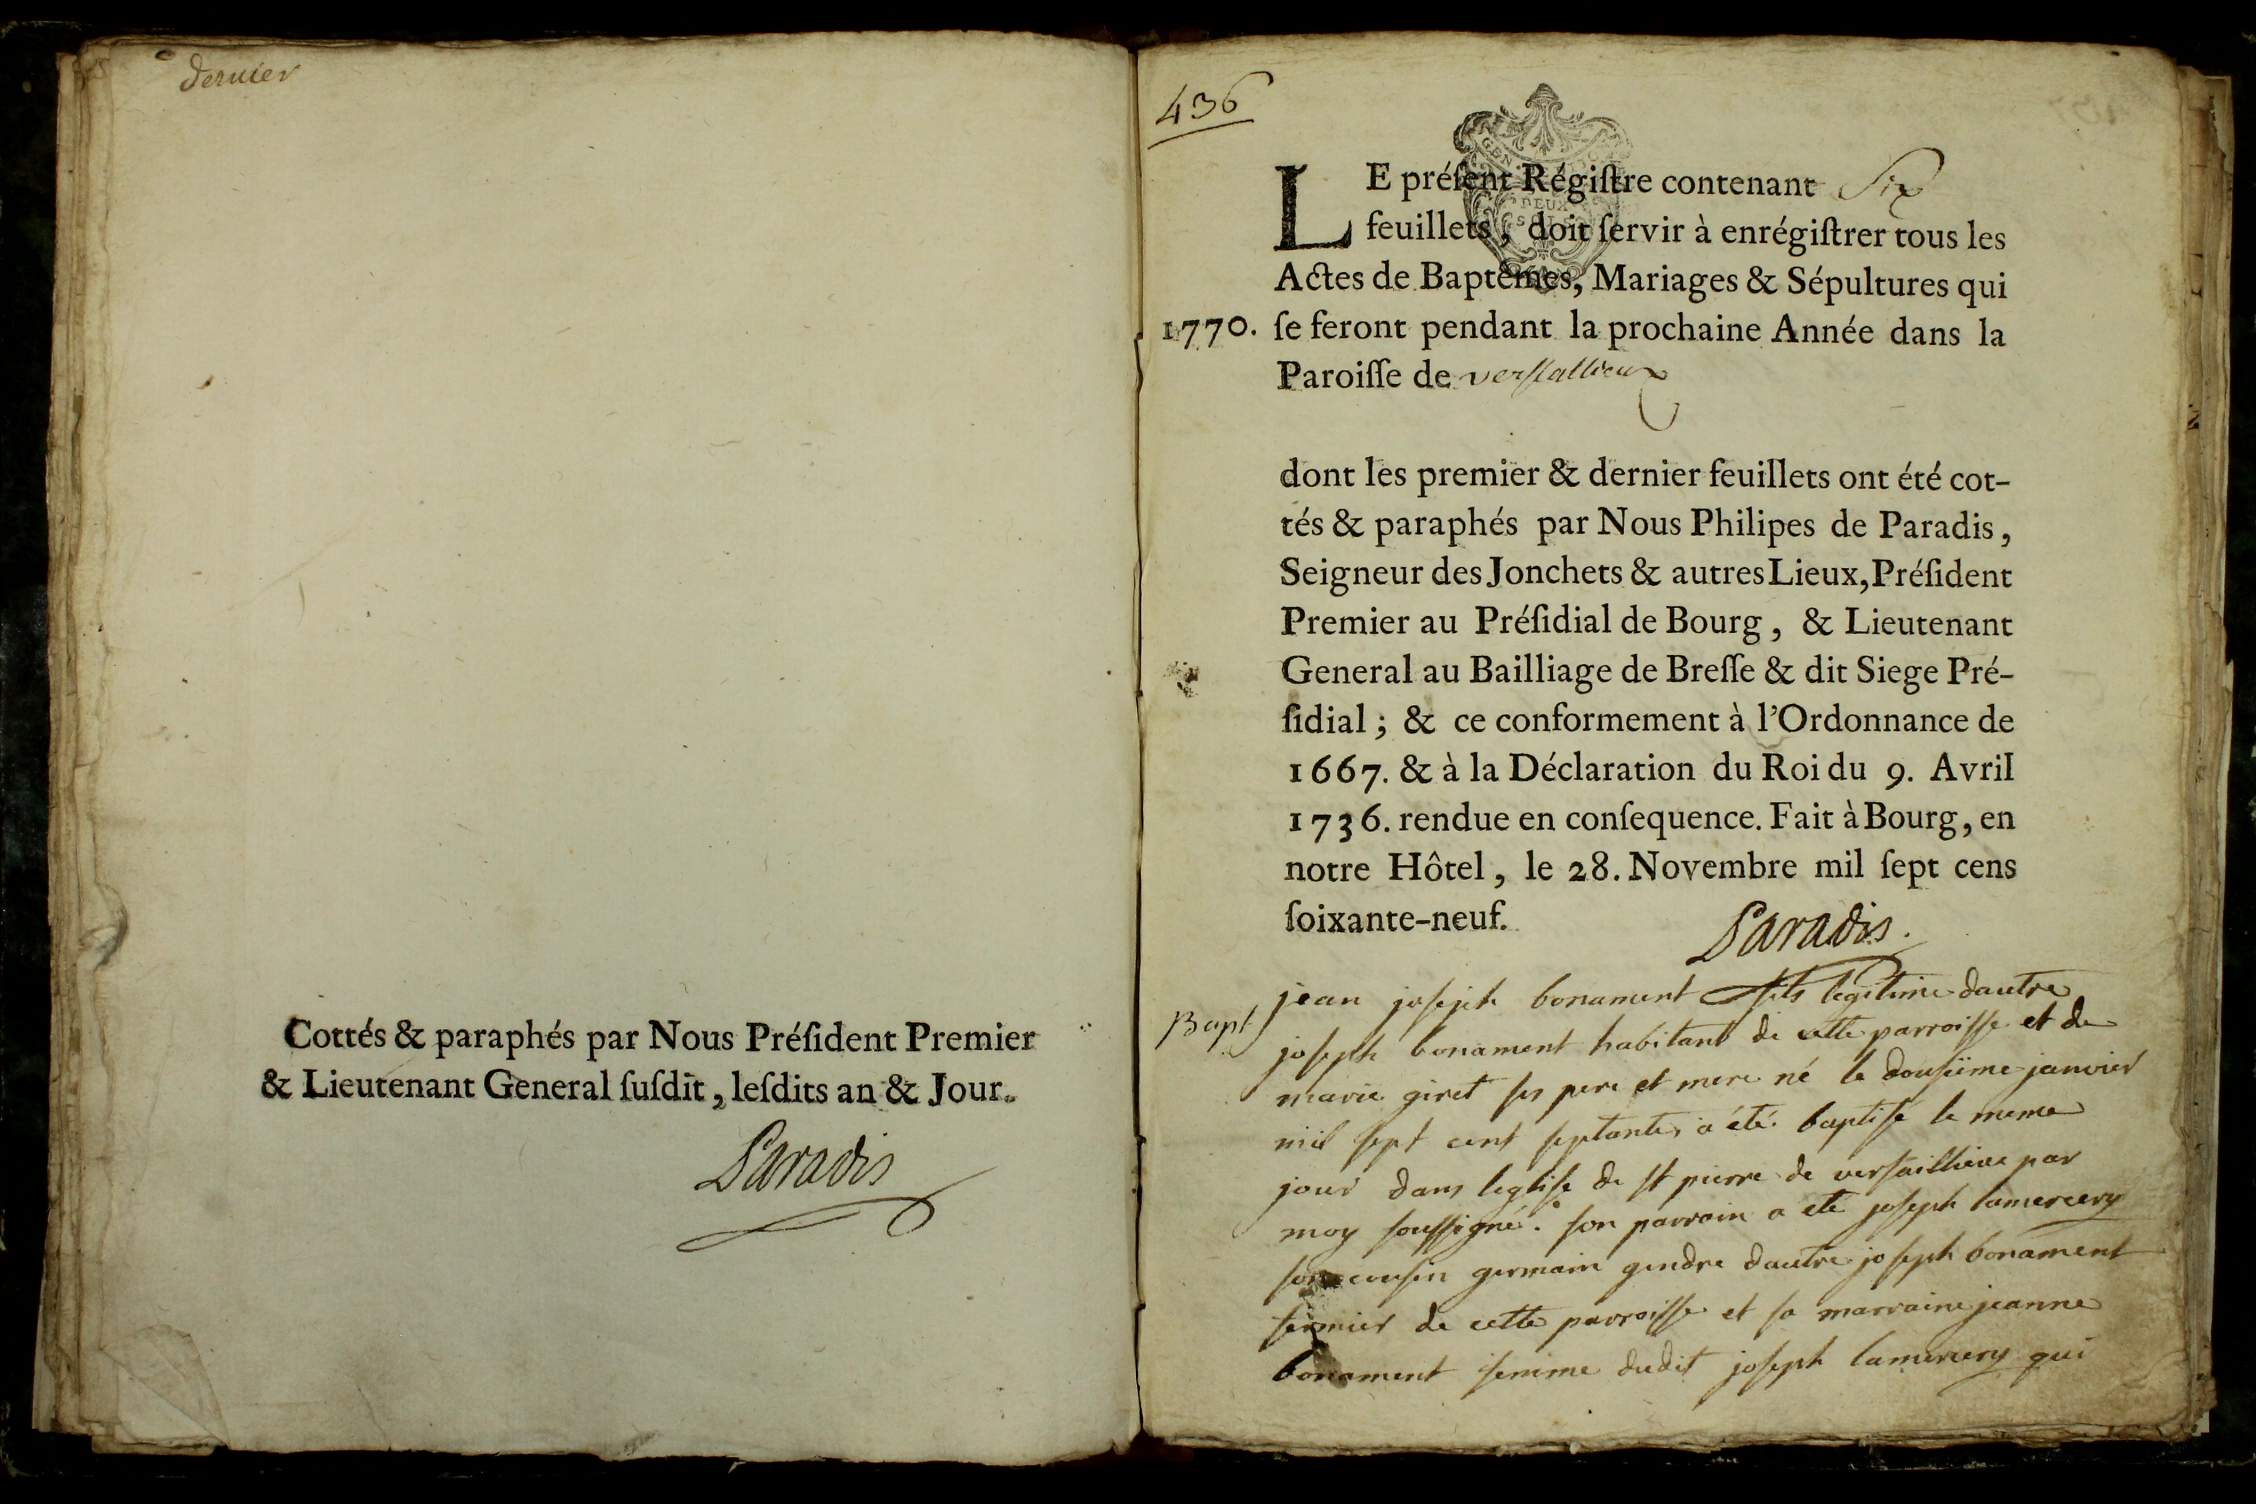 dernier
Cottés & paraphés par Nous Préſident Premier
& Lieutenant General ſuſdit, leſdits an & Jour.
Paradis
436
LE préſent Régiſtre contenant Six
feuillets, doit ſervir à enrégiſtrer tous les
Actes de Baptêmes, Mariages & Sépultures qui
1770. ſe feront pendant la prochaine Année dans la
Paroiſſe de verſallieux
dont les premier & dernier feuillets ont été cot-
tés & paraphés par Nous Philipes de Paradis,
Seigneur des Jonchets & autres Lieux, Préſident
Premier au Préſidial de Bourg, & Lieutenant
General au Bailliage de Breſſe & dit Siege Pré-
ſidial; & ce conformement à l'Ordonnance de
1667. & à la Déclaration du Roi du 9. Avril
1736. rendue en conſequence. Fait à Bourg, en
notre Hôtel, le 28. Novembre mil ſept cens
ſoixante-neuf.
Paradis.
Bapt jean joſeph bonament fils legitime dautre
joſeph bonament habitant de cette parroiſſe et de
marie giret ſes pere et mere né le douſiéme janvier
mil ſept cent ſeptante, a été baptiſe le meme
jour dans legliſe de st pierre de verſaillieux par
moy ſouſſigné. ſon parrain a eté joſeph lamercery
ſon couſin germain gendre dautre joſeph bonament
fermier de cette parroiſſe et ſa marraine jeanne
bonament femme dudit joſeph lamercery qui